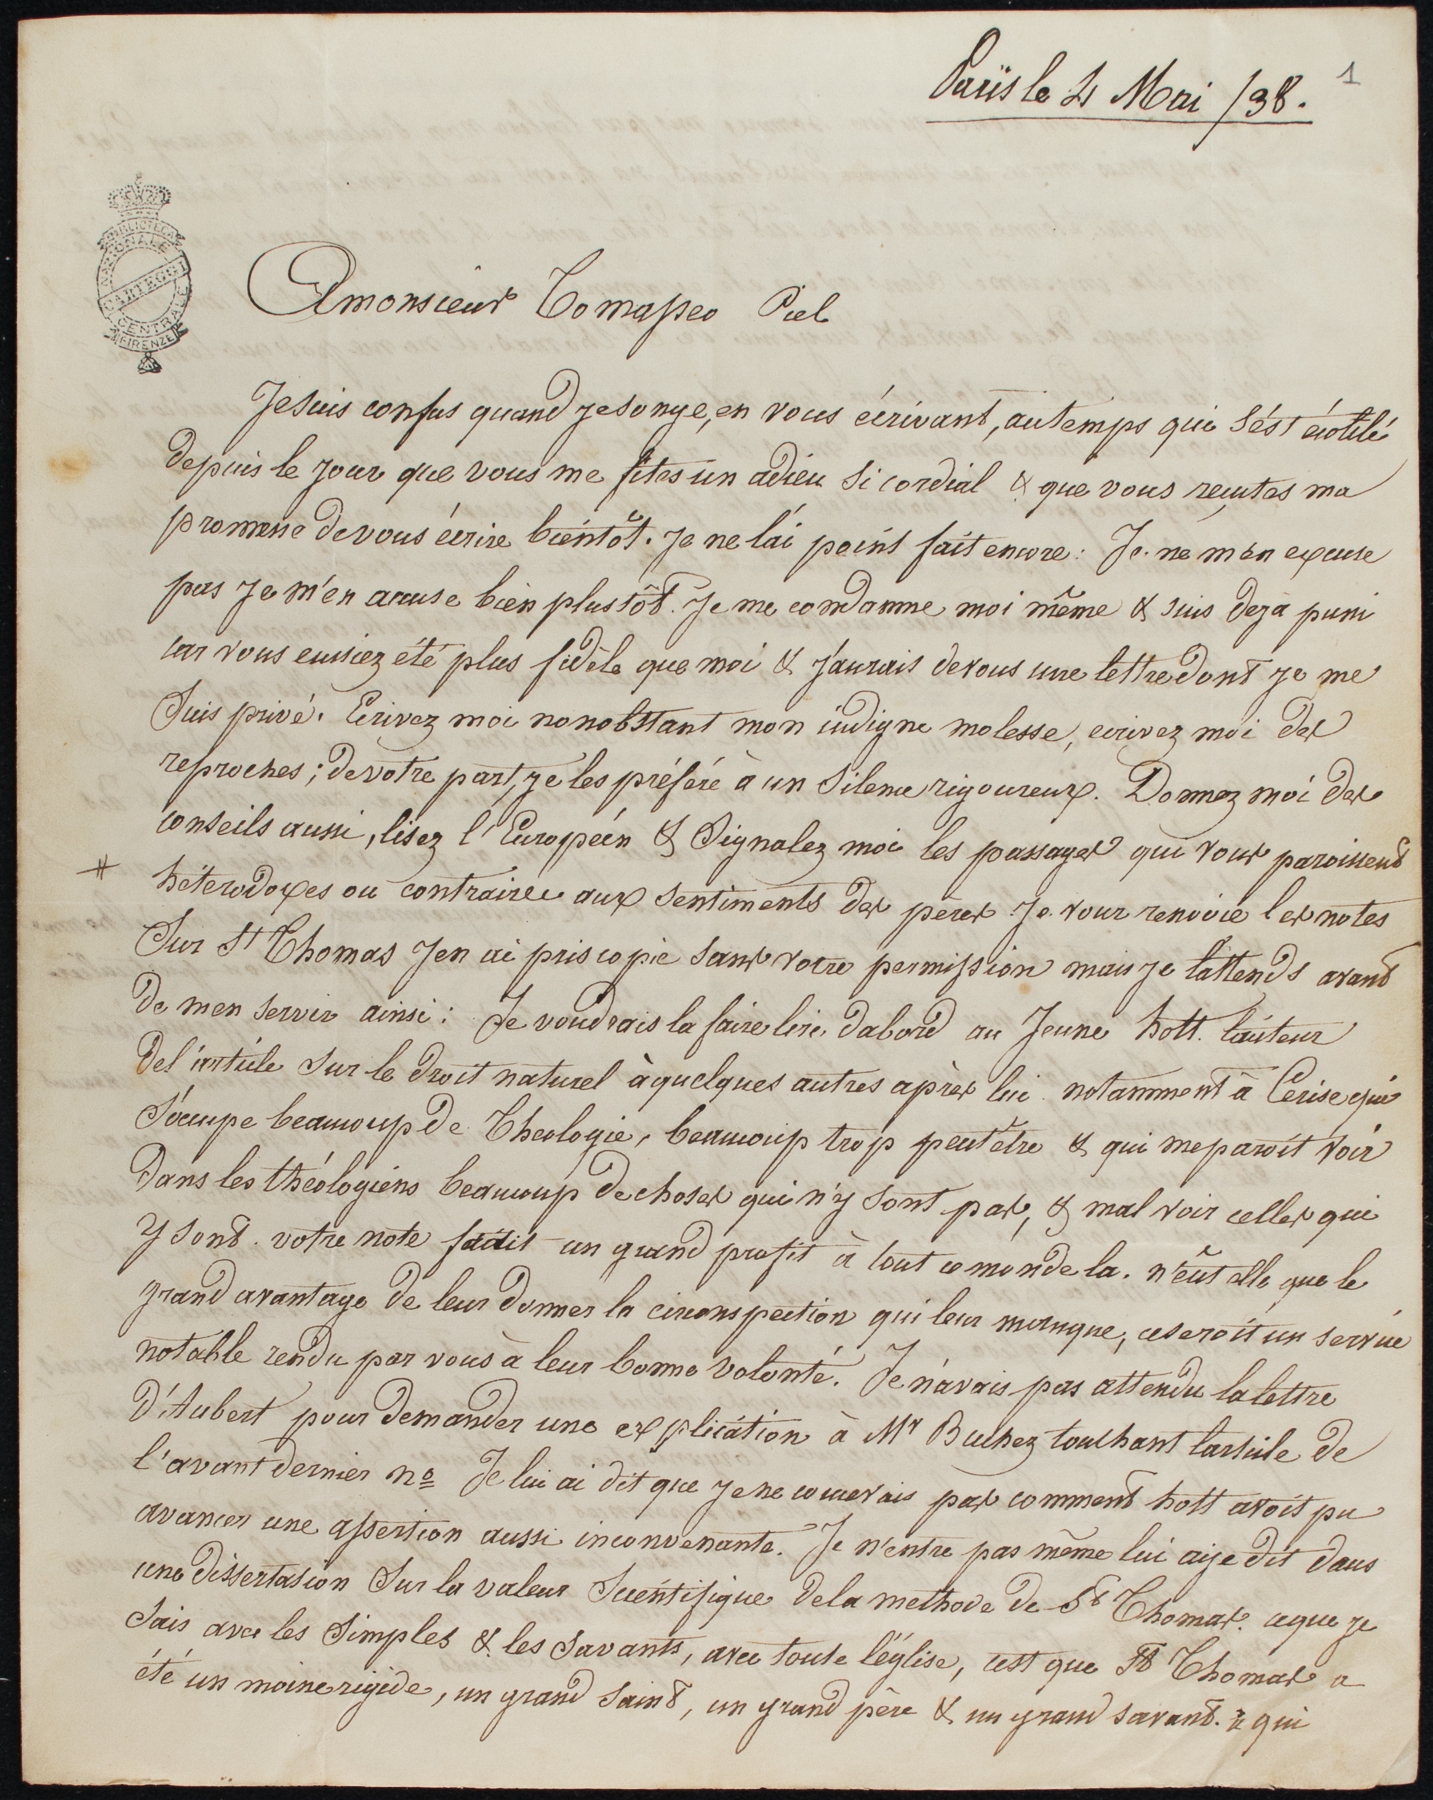 1
Paris le 4 Mai /38.
BIBLIOTECA
NAZIONALE
CARTEGGI
CENTRALE
FIRENZE
A monsieur Tomaseo Piel
Je suis confus quand je songe, en vous écrivant, au temps qui s'ést écoulé
depuis le jour que vous me fites un adieu si cordial & que vous reçutes ma
promesse de vous écrire bientôt. Je ne l'ai point fait encore : Je ne m'en excuse
pas je m'en accuse bien plustôt. Je me condamne moi même & suis deja puni
car vous eussiez été plus fidèle que moi & j'aurais de vous une lettre dont je me
suis privé. Ecrivez moi nonobstant mon indigne molesse, ecrivez moi des
reproches ; de votre part, je les préfére à un silence rigoureux. Donnez moi des
conseils aussi, lisez l'Européen & signalez moi les passages qui vous paroissent
# hétérodoxes ou contraires aux sentiments des pères. Je vous renvoie les notes
sur St Thomas j'en ai pris copie sans votre permission mais je l'attends avant
de m'en servir ainsi : Je voudrais la faire lire dabord au Jeune hott. l'auteur
de l'article sur le droit naturel à quelques autres après lui notamment à Cerise qui
s'occupe beaucoup de Theologie, beaucoup trop peut être & qui me paroit voir
dans les théologiens beaucoup de choses qui n'y sont pas, & mal voir celles qui
y sont. votre note fit un grand profit à tout ce monde la. n'eût elle que le
grand avantage de leur donner la circonspection qui leur manque, ce seroit un service
notable rendu par vous à leur bonne volonté. Je n'avais pas attendu la lettre
d'Aubert pour demander une explication à Mr Buchez touchant l'article de
l'avant dernier no Je lui ai dit que je ne concevais pas comment hott avoit pu
avancer une assertion aussi inconvenante. Je n'entre pas même lui ai je dit dans
une dissertasion sur la valeur scientifique de la methode de St Thomas. ce que je
sais avec les simples & les savants, avec toute l'église, c'est que St Thomas a
été un moine rigide, un grand saint, un grand père & un grand savant. & qui